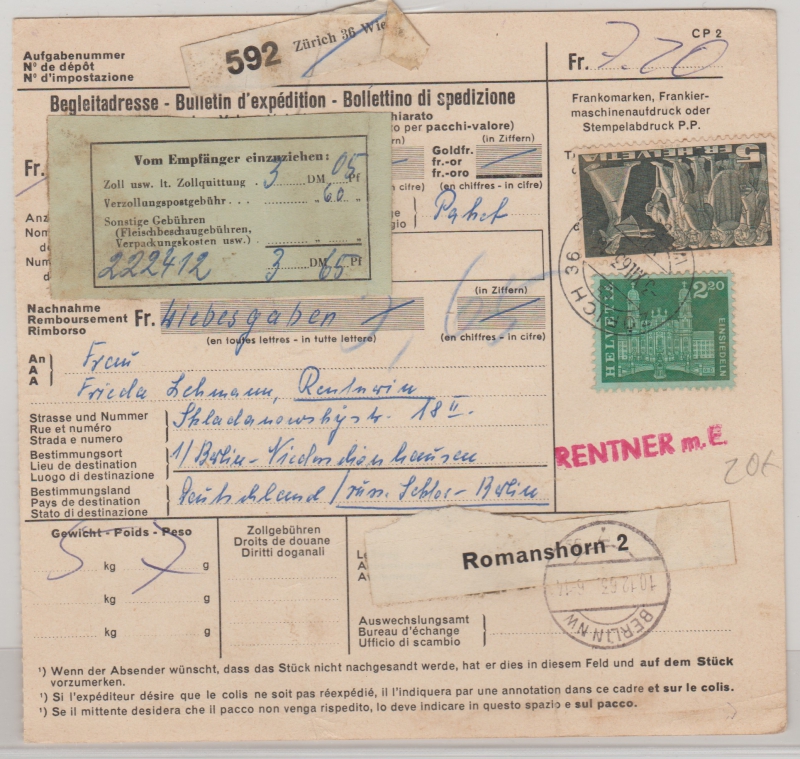 592 Zürich 36 Wie
CP 2
Aufgabenummer
N° de dépôt
N° d'impostazione
Fr. 7.20
Begleitadresse - Bulletin d'expédition - Bollettino di spedizione
Frankomarken, Frankier-
maschinenaufdruck oder
Stempelabdruck P.P.
chiarato
to per pacchi-valore)
(in Ziffern)
Goldfr.
fr.-or
fr.-oro
(en chiffres - in cifre)
Fr.
Vom Empfänger einzuziehen:
Zoll usw. lt. Zollquittung 3 DM 05 Pf
Verzollungspostgebühr . . . „ 60 „
Sonstige Gebühren
(Fleischbeschaugebühren,
Verpackungskosten usw.) „ „
222412 3 DM 65 Pf
Paket
5 FR HELVETIA
HELVETIA 2.20
EINSIEDELN
Nachnahme
Remboursement
Rimborso
Fr. Liebesgaben
(en toutes lettres - in tutte lettere)
(in Ziffern)
(en chiffres - in cifre)
3,65
An
A
A
Frau
Frieda Lehmann, Rentnerin
Strasse und Nummer
Rue et numéro
Strada e numero
Skladanowskystr. 18 II.
Bestimmungsort
Lieu de destination
Luogo di destinazione
1/Berlin-Niederschönhausen
Bestimmungsland
Pays de destination
Stato di destinazione
Deutschland/russ. Sektor-Berlin
RENTNER m. E.
20€
Gewicht - Poids - Peso
kg g
kg g
kg g
Zollgebühren
Droits de douane
Diritti doganali
Romanshorn 2
10.12.63. 6-14
BERLIN NW
Auswechslungsamt
Bureau d'échange
Ufficio di scambio
¹) Wenn der Absender wünscht, dass das Stück nicht nachgesandt werde, hat er dies in diesem Feld und auf dem Stück
vorzumerken.
¹) Si l'expéditeur désire que le colis ne soit pas réexpédié, il l'indiquera par une annotation dans ce cadre et sur le colis.
¹) Se il mittente desidera che il pacco non venga rispedito, lo deve indicare in questo spazio e sul pacco.